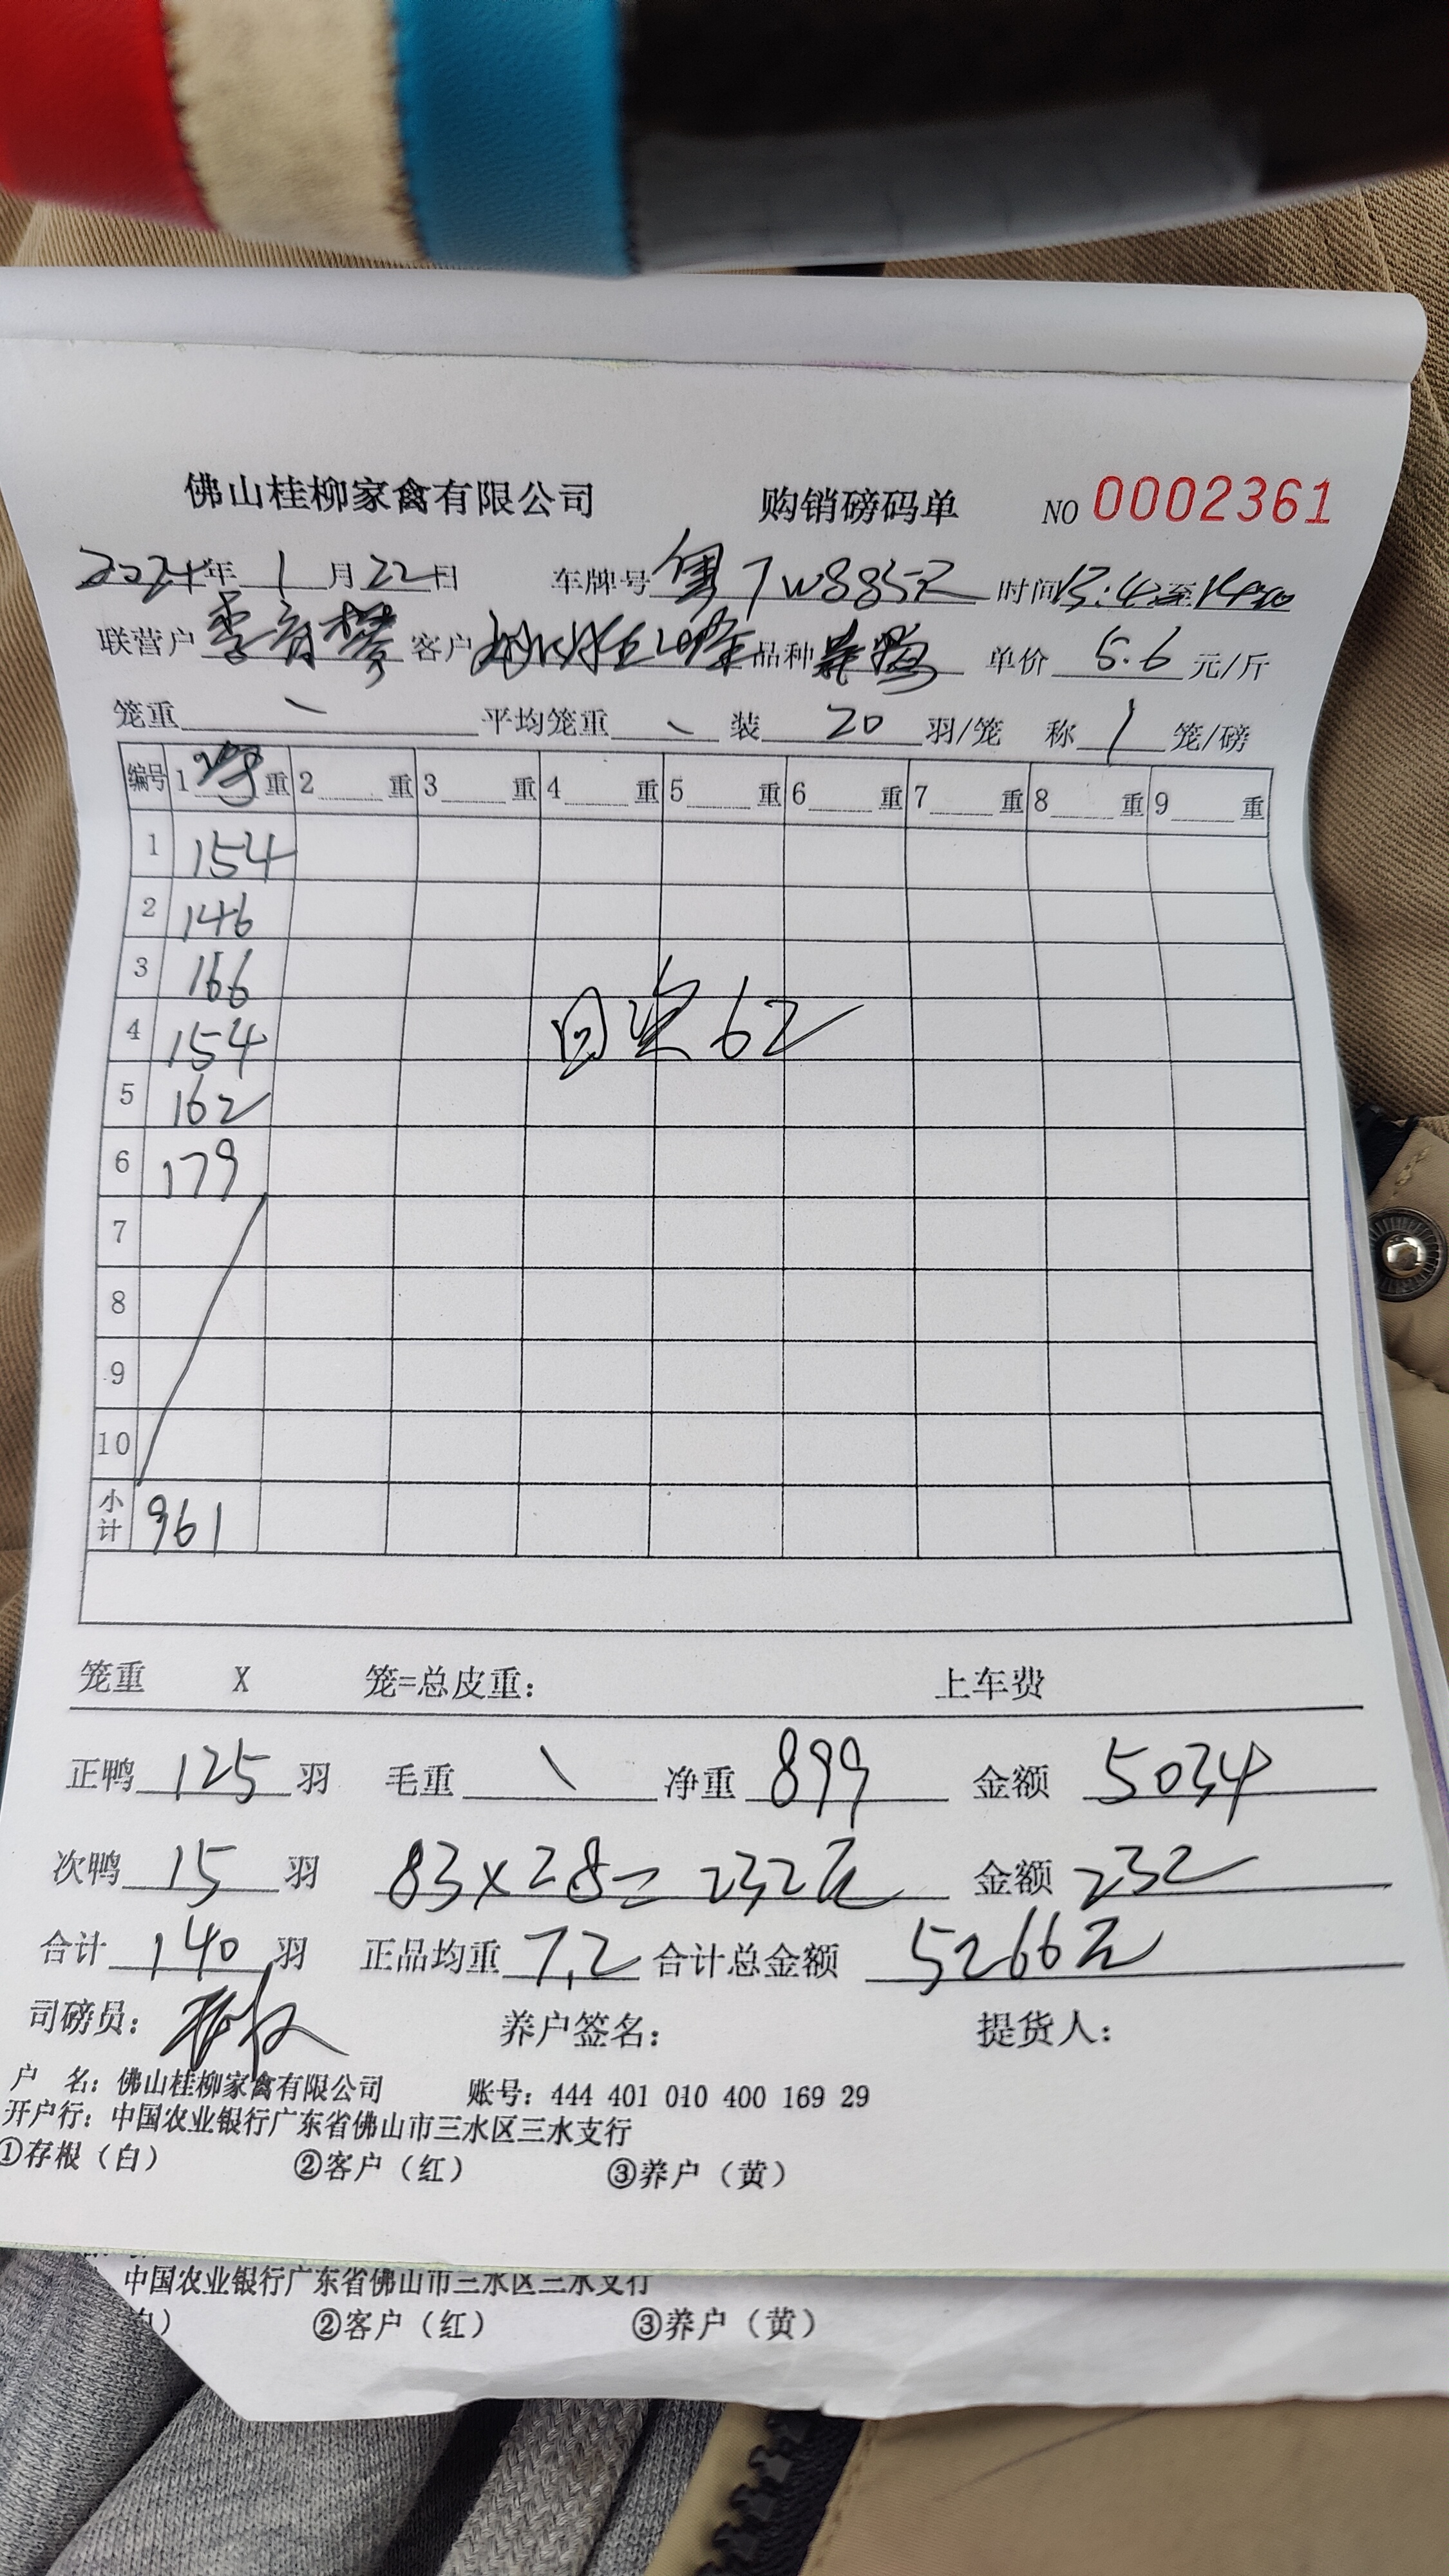 佛山桂柳家禽有限公司 购销磅码单 NO 0002361
2024年 1 月 22 日 车牌号 粤 时间 13:4 至
联营户 李 客户 品种 单价 5.6 元/斤
笼重 平均笼重 装 20 羽/笼 称 1 笼/磅
编号 1 重 2 重 3 重 4 重 5 重 6 重 7 重 8 重 9 重
1 154
2 146
3 166
4 154 回 62
5 162
6 179
7
8
9
10
小计 961
笼重 X 笼=总皮重: 上车费
正鸭 125 羽 毛重 \ 净重 899 金额 5034
次鸭 15 羽 83×28=232元 金额 232
合计 140 羽 正品均重 7.2 合计总金额 5266元
司磅员: 养户签名: 提货人:
户 名: 佛山桂柳家禽有限公司 账号: 444 401 010 400 169 29
开户行: 中国农业银行广东省佛山市三水区三水支行
①存根（白） ②客户（红） ③养户（黄）
中国农业银行广东省佛山市三水区三水支行
白） ②客户（红） ③养户（黄）